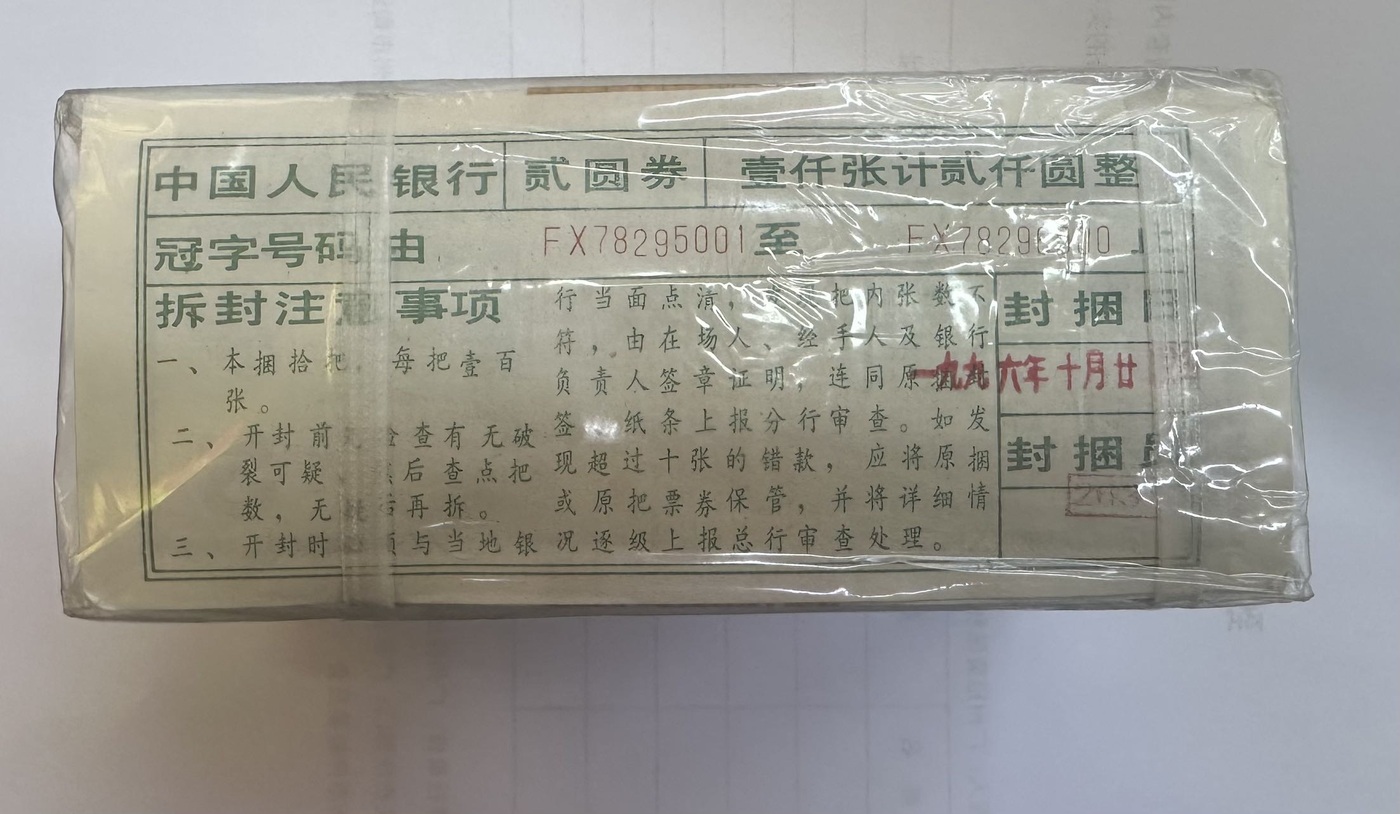 中国人民银行 贰圆券 壹仟张计贰仟圆整
冠字号码 由 FX78295001 至
拆封注意事项
一、本捆拾把,每把壹百
张。
二、开封前 查有无破
裂可疑, 后查点把
数,无 再拆。
三、开封时 与当地银
行当面点清, 把内张数不
符,由在场人、经手人及银行
负责人签章证明,连同原捆封
签、纸条上报分行审查。如发
现超过十张的错款,应将原捆
或原把票券保管,并将详细情
况逐级上报总行审查处理。
封捆
一九九六年十月廿
封捆